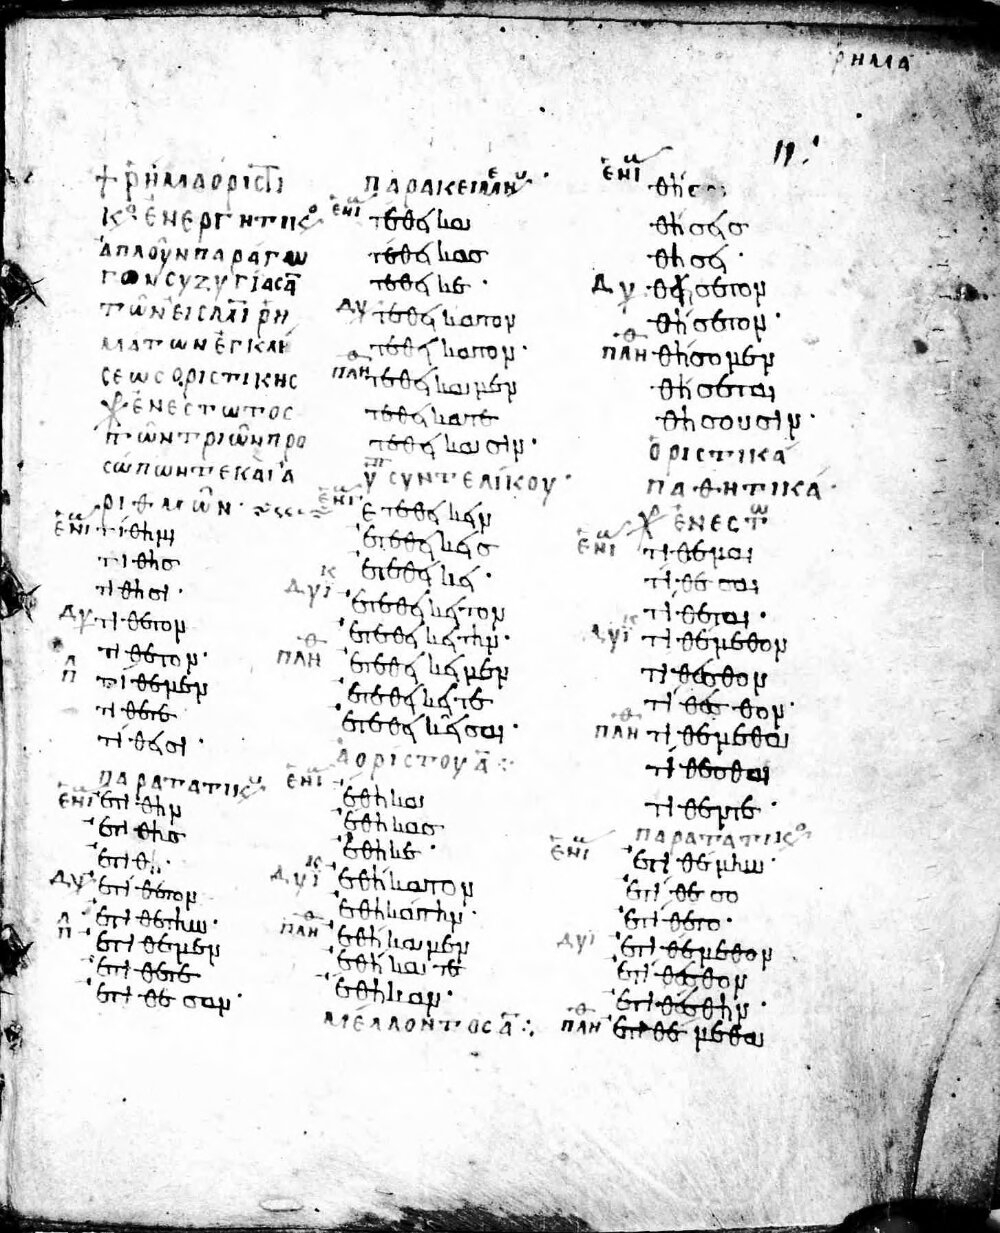 ΡΗΜΑ
+ ΡΗΜΑ ΟΡΙCΤΙ
Κ° ἘΝΕΡΓΗΤΙΚ°
ἁΠΛΟῦΝ ΠΑΡΑΓΩ
ΓΟΝ CΥΖΥΓΙΑC Α̅
ΤῶΝ ΕΙC ΜΙ ΡΗ
ΜΑΤΩΝ ἘΓΚΛΙ
CΕΩC ΟΡΙCΤΙΚΗC
ἘΝΕCΤΩΤΟC
ΤῶΝ ΤΡΙῶΝ ΠΡΟ
CώΠΩΝ ΤΕ ΚΑΙ Ἀ
ΡΙΘΜῶΝ ·
ἙΝΙ τίθημι
τίθησ
τίθησι ·
ΔΥ τίθετον
τίθετον ·
Π τίθεμεν
τίθετε
τιθέασι ·
ΠΑΡΑΤΑΤΙΚ
ἙΝΙ ἐτίθην
ἐτίθησ
ἐτίθη ·
ΔΥ ἐτίθετον
ἐτιθέτην ·
Π ἐτίθεμεν
ἐτίθετε
ἐτίθεσαν ·
ΠΑΡΑΚΕΙΜΕΝ ·
ἙΝΙ τέθεικα
τέθεικασ
τέθεικε ·
ΔΥ τεθείκατον
τεθείκατον ·
ΠΛΗ τεθείκαμεν
τεθείκατε
τεθείκασιν ·
ὙΠ CΥΝΤΕΛΙΚΟΥ ·
ἙΝΙ ἐτεθείκειν
ἐτεθείκεισ
ἐτεθείκει ·
ΔΥΙ ἐτεθείκειτον
ἐτεθεικείτην ·
ΠΛΗ ἐτεθείκειμεν
ἐτεθείκειτε
ἐτεθείκεισαν ·
ἈΟΡΙCΤΟΥ Α̅ :
ἙΝΙ ἔθηκα
ἔθηκασ
ἔθηκε ·
ΔΥΙ ἐθήκατον
ἐθηκάτην ·
ΠΛΗ ἐθήκαμεν
ἐθήκατε
ἔθηκαν ·
ΜΕΛΛΟΝΤΟC Α̅ :
ἙΝΙ θήσω
θήσεισ
θήσει ·
ΔΥ θήσετον
θήσετον ·
ΠΛΗ θήσομεν
θήσετε
θήσουσιν ·
ὉΡΙCΤΙΚΑ
ΠΑΘΗΤΙΚΑ ·
ἘΝΕCΤ
ἙΝΙ τίθεμαι
τίθεσαι
τίθεται ·
ΔΥΙ τιθέμεθον
τίθεσθον
τίθεσθον ·
ΠΛΗ τιθέμεθα
τίθεσθε
τίθενται ·
ΠΑΡΑΤΑΤΙΚ°
ἙΝΙ ἐτιθέμην ·
ἐτίθεσο
ἐτίθετο ·
ΔΥΙ ἐτιθέμεθον
ἐτίθεσθον
ἐτιθέσθην ·
ΠΛΗ ἐτιθέμεθα